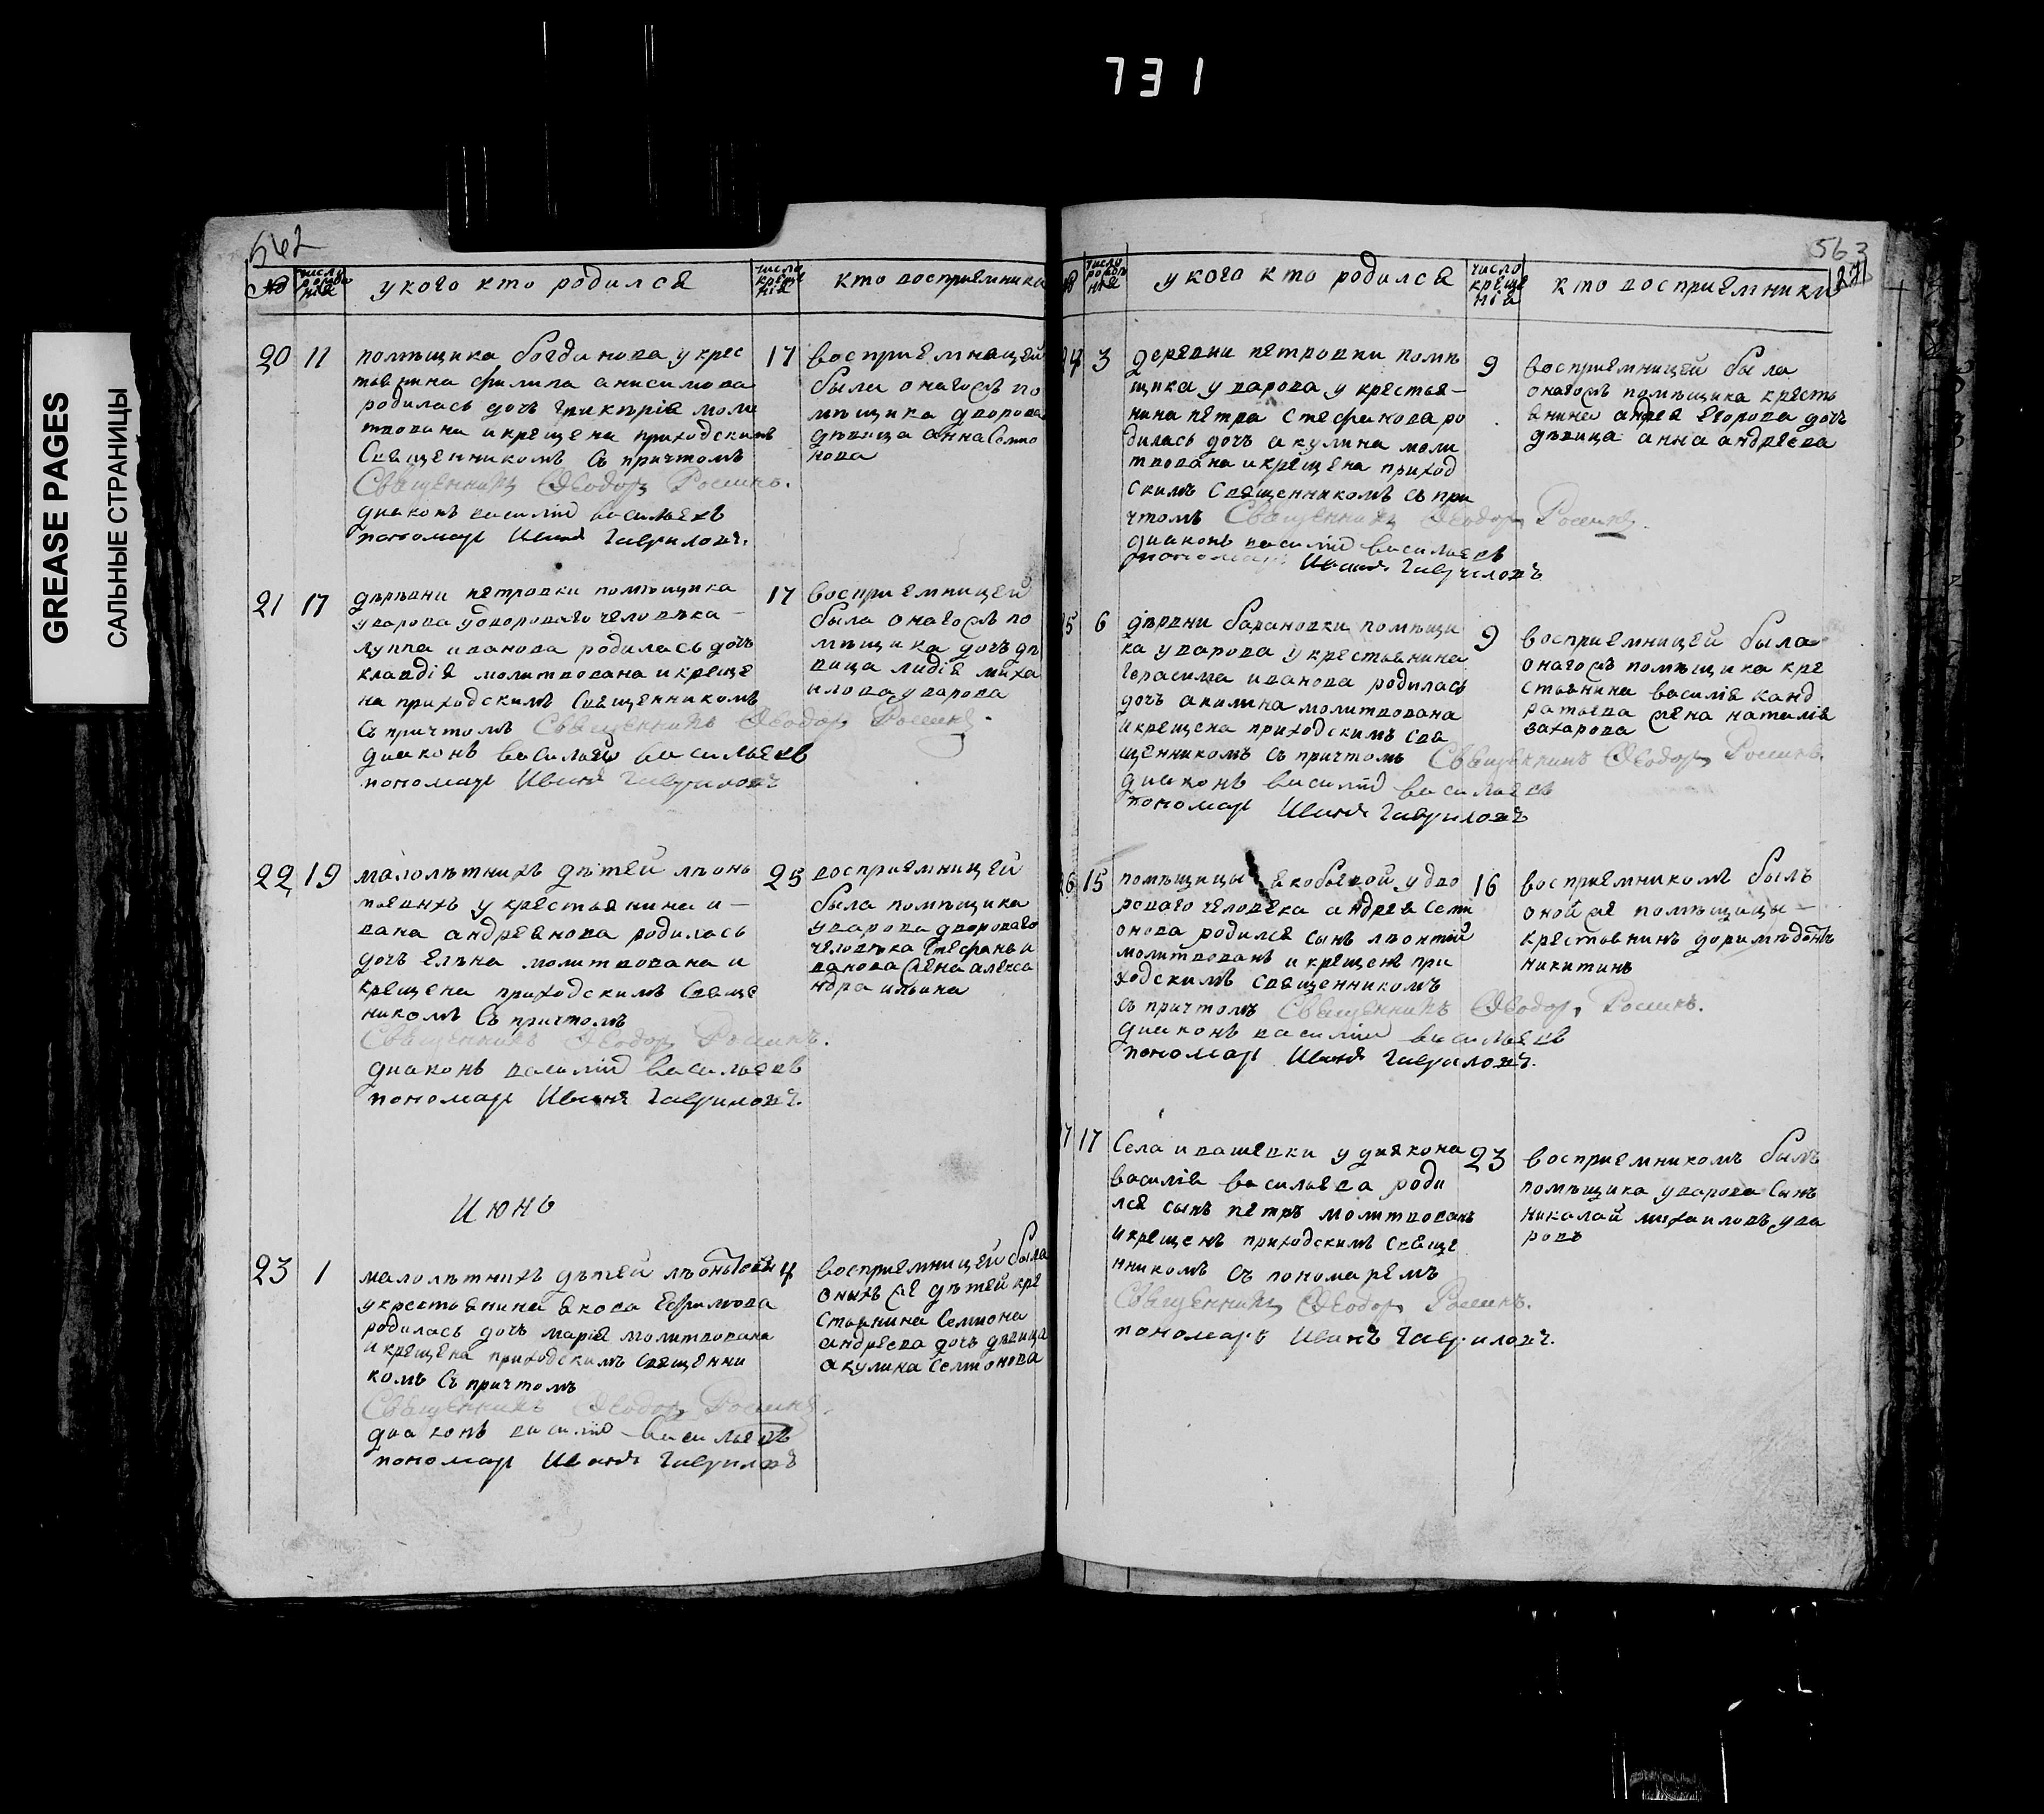 731
GREASE PAGES
САЛЬНЫЕ СТРАНИЦЫ
562
№
число рожде нія
у кого кто родился
число креще нія
кто восприемники
20
11
помѣщика богданова у крес
тьянина филипа анисимова
родилась дочь гликѣрія моли
твована и крещена приходскимъ
Священникомъ съ причтомъ
Священникъ Ѳеодоръ Росинъ.
диаконъ василій васильевъ
пономарь Иванъ Гавриловъ.
17
восприемницей
была оногожъ по
мѣщика дворовая
дѣвица анна Семио
нова
21
17
дѣрѣвни петровки помѣщика
уварова у двороваго человѣка
луппа иванова родилась дочь
клавдія молитвована и креще
на приходскимъ Священникомъ
съ причтомъ Священникъ Ѳеодоръ Росинъ.
диаконъ василій васильевъ
пономарь Иванъ Гавриловъ
17
восприемницей
была оногожъ по
мѣщика дочь дѣ
вица лидія миха
илова уварова
22
19
малолѣтнихъ дѣтей лѣонь
тьевыхъ у крестьянина и
вана андреянова родилась
дочь елѣна молитвована и
крещена приходскимъ Свяще
никомъ Съ причтомъ
Священникъ Ѳеодоръ Росинъ.
диаконъ василій васильевъ
пономарь Иванъ Гавриловъ.
25
восприемницей
была помѣщика
уварова двороваго
человѣка Стефана и
ванова жена алекса
ндра ильина
Июнь
23
1
малолѣтнихъ дѣтей лѣоньтьевы
у крестьянина якова Ефимова
родилась дочь марія молитвована
и крещена приходскимъ священни
комъ Съ причтомъ
Священникъ Ѳеодоръ Росинъ.
диаконъ василій васильевъ
пономарь Иванъ Гавриловъ
4
восприемницей была
оныхъ же дѣтей кре
стьянина Семиона
андреева дочь дѣвица
акулина Семионова
563
№
число рожде нія
у кого кто родился
число креще нія
кто восприемники
24
3
деревни петровки помѣ
щика уварова у крестья
нина пѣтра стефанова ро
дилась дочь акулина моли
твована и крещена приход
скимъ Священникомъ съ при
чтомъ Священникъ Ѳеодоръ Росинъ.
диаконъ василій васильевъ
пономарь Иванъ Гавриловъ
9
восприемницей была
оногожъ помѣщика кресть
янина андрея егорова дочь
дѣвица анна андрѣева
25
6
дѣрвни барановки помѣщи
ка уварова у крестьянина
Герасима иванова родилась
дочь акилина молитвована
и крещена приходскимъ свя
щенникомъ съ причтомъ Священникъ Ѳеодоръ Росинъ.
диаконъ василій васильевъ
пономарь Иванъ Гавриловъ
9
восприемницей была
оногожъ помѣщика кре
стьянина василія канд
ратьева жена наталія
захарова
26
15
помѣщицы якобьевой у дво
роваго человека андрея Семи
онова родился сынъ лѣонтій
молитвованъ и крещенъ при
ходскимъ священникомъ
съ причтомъ Священникъ Ѳеодоръ Росинъ.
диаконъ василій васильевъ
пономарь Иванъ Гавриловъ.
16
восприемникомъ былъ
оной же помѣщицы
крестьянинъ доримѣдонтъ
никитинъ
27
17
Села ивашевки у диякона
василія васильева роди
лся сынъ пѣтръ молитвованъ
и крещенъ приходскимъ Свяще
нникомъ съ пономаремъ
Священникъ Ѳеодоръ Росинъ.
пономарь Иванъ Гавриловъ.
23
восприемникомъ былъ
помѣщика уварова Сынъ
николай михаиловъ ува
ровъ